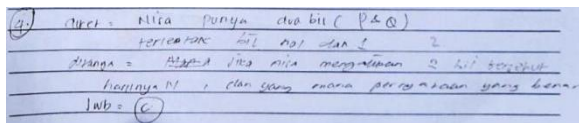 9. diket = Nisa punya dua bil ( P & Q )
terletak bil nol dan 1 2
ditanya = jika nisa mengalikan 2 bil tersebut
hasilnya N , dan yang mana pernyataan yang benar
Jwb = C